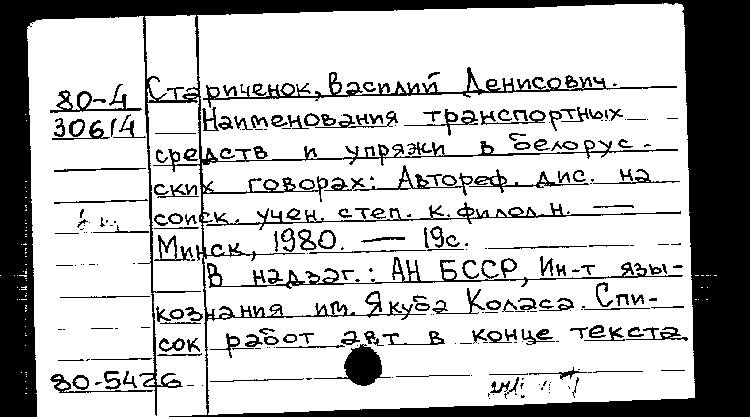 Стариченок, Василий Денисович.
80-4
30614
Наименования транспортных
средств и упряжи в белорус-
ских говорах: Автореф. дис. на
соиск. учен. степ. к. филол. н. —
Минск, 1980. — 19с.
В надзаг.: АН БССР, Ин-т язы-
кознания им. Якуба Коласа. Спи-
сок работ авт. в конце текста.
80-5426